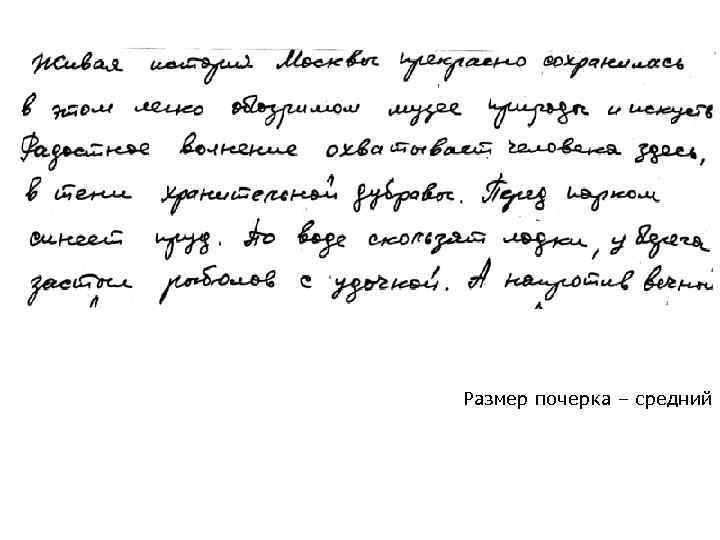 Живая история Москвы прекрасно сохранилась
в этом легко обозримом музее природы и искусств
Радостное волнение охватывает человека здесь,
в тени хранительной дубравы. Перед парком
синеет пруд. По воде скользят лодки, у берега
застыл рыболов с удочкой. А напротив вечной
Размер почерка – средний